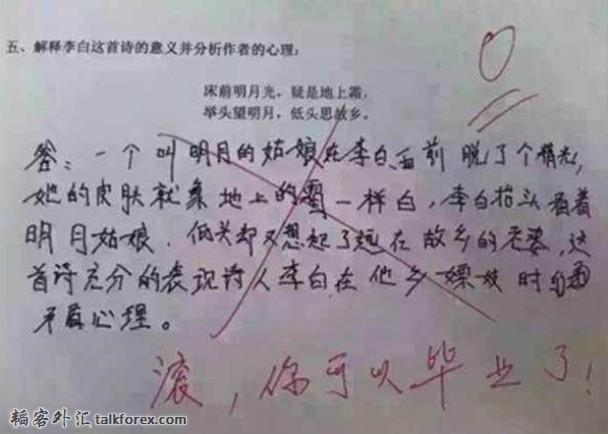 五、解释李白这首诗的意义并分析作者的心理：
0
床前明月光，疑是地上霜，
举头望明月，低头思故乡。
答：一个叫明月的姑娘在李白面前脱了个精光，
她的皮肤就象地上的霜一样白，李白抬头看着
明月姑娘，低头却又想起了远在故乡的老婆，这
首诗充分的表现诗人李白在他乡嫖妓时的
矛盾心理。
滚，你可以毕业了！
韬客外汇 talkforex.com